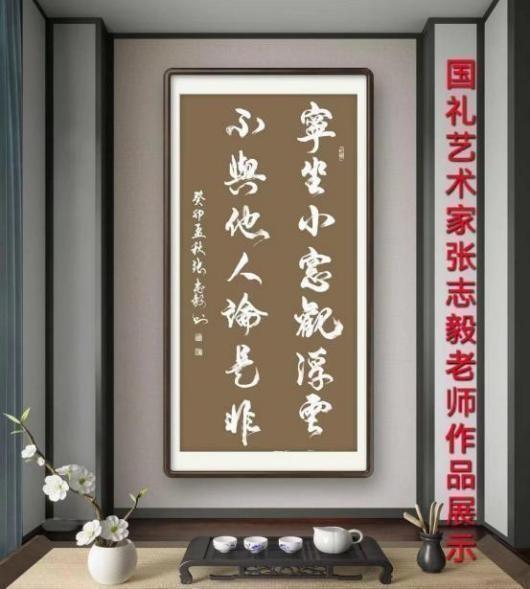 寧坐小窓觀浮雲
不與他人論是非
癸卯孟秋張志毅
国礼艺术家张志毅老师作品展示